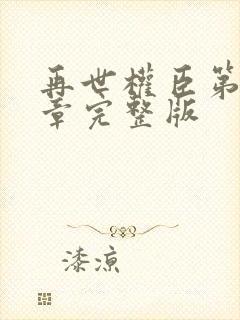 再世權臣第
章完整版
漆涼